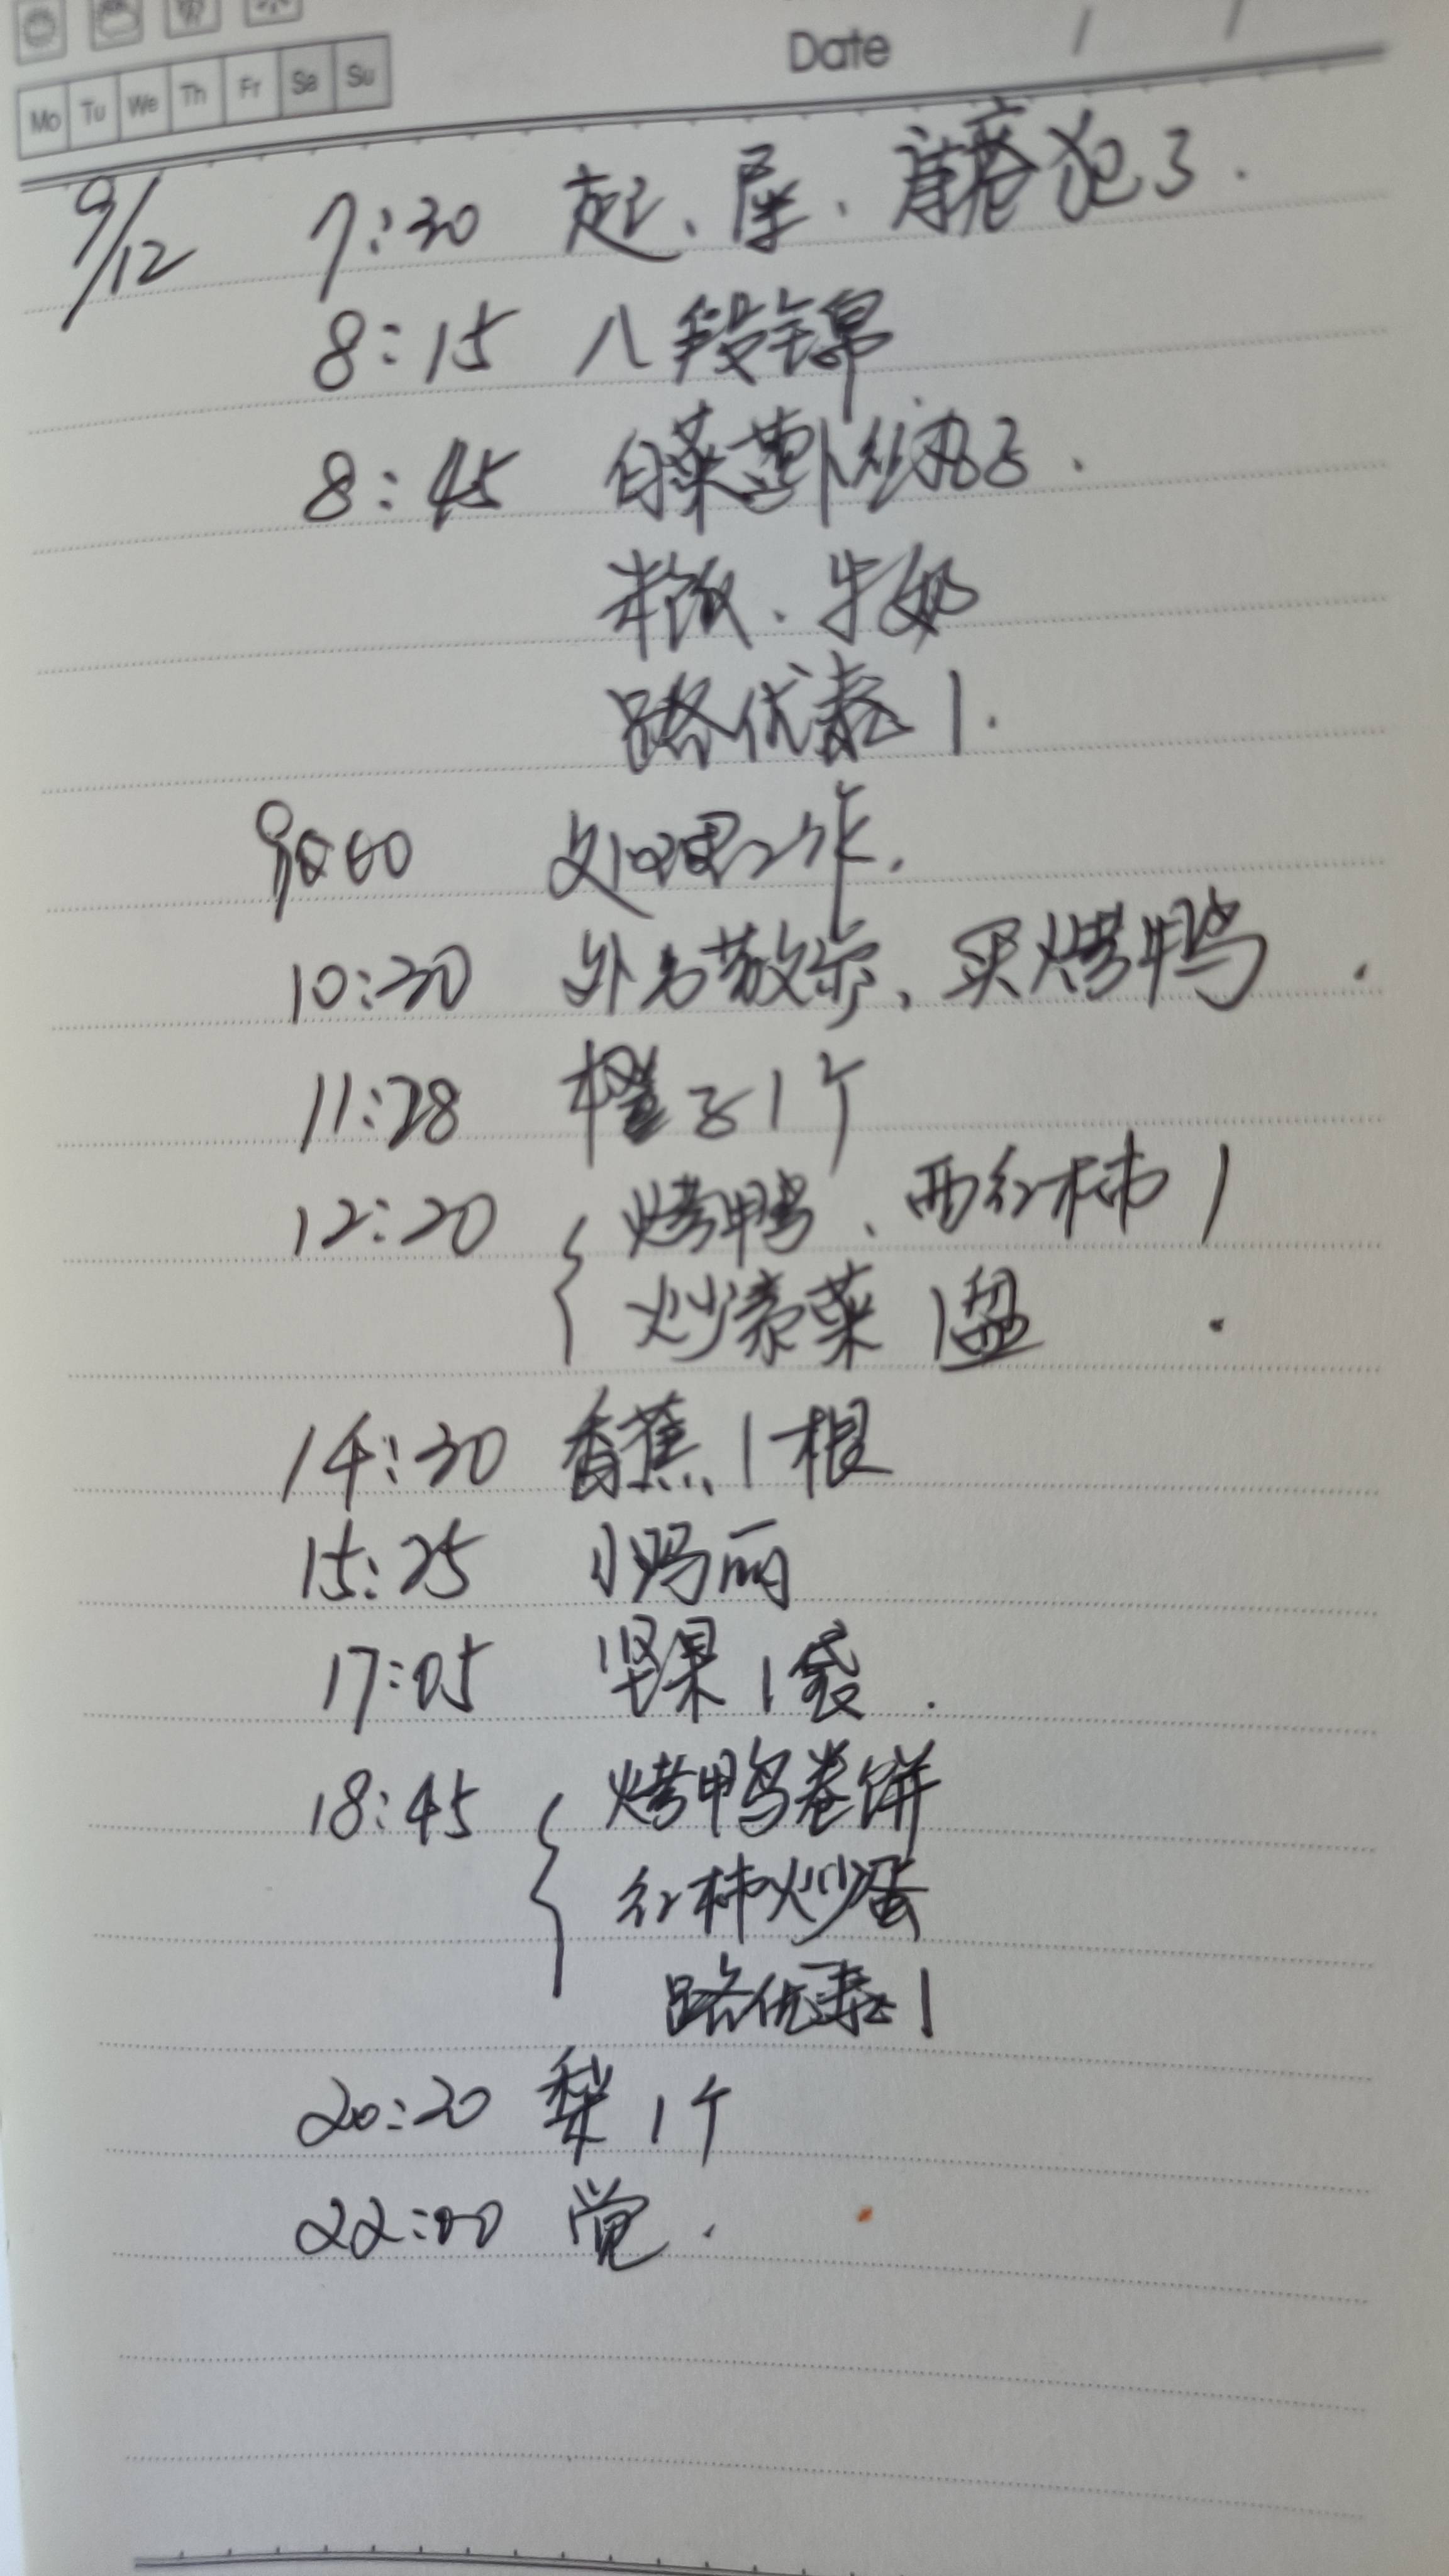 Date / /
Mo Tu We Th Fr Sa Su
9/12 7:30 起、座、犯了.
8:15 八段锦
8:45 白菜萝卜丝丸子.
米饭、牛奶
路优泰1.
9:00 处理工作.
10:30 外出散步、买烤鸭.
11:28 橙子1个
12:20 烤鸭、西红柿1
炒素菜1盘.
14:30 香蕉1根
15:25 小玛丽
17:05 坚果1袋.
18:45 烤鸭卷饼
红柿炒蛋
路优泰1
20:20 梨1个
22:00 觉.